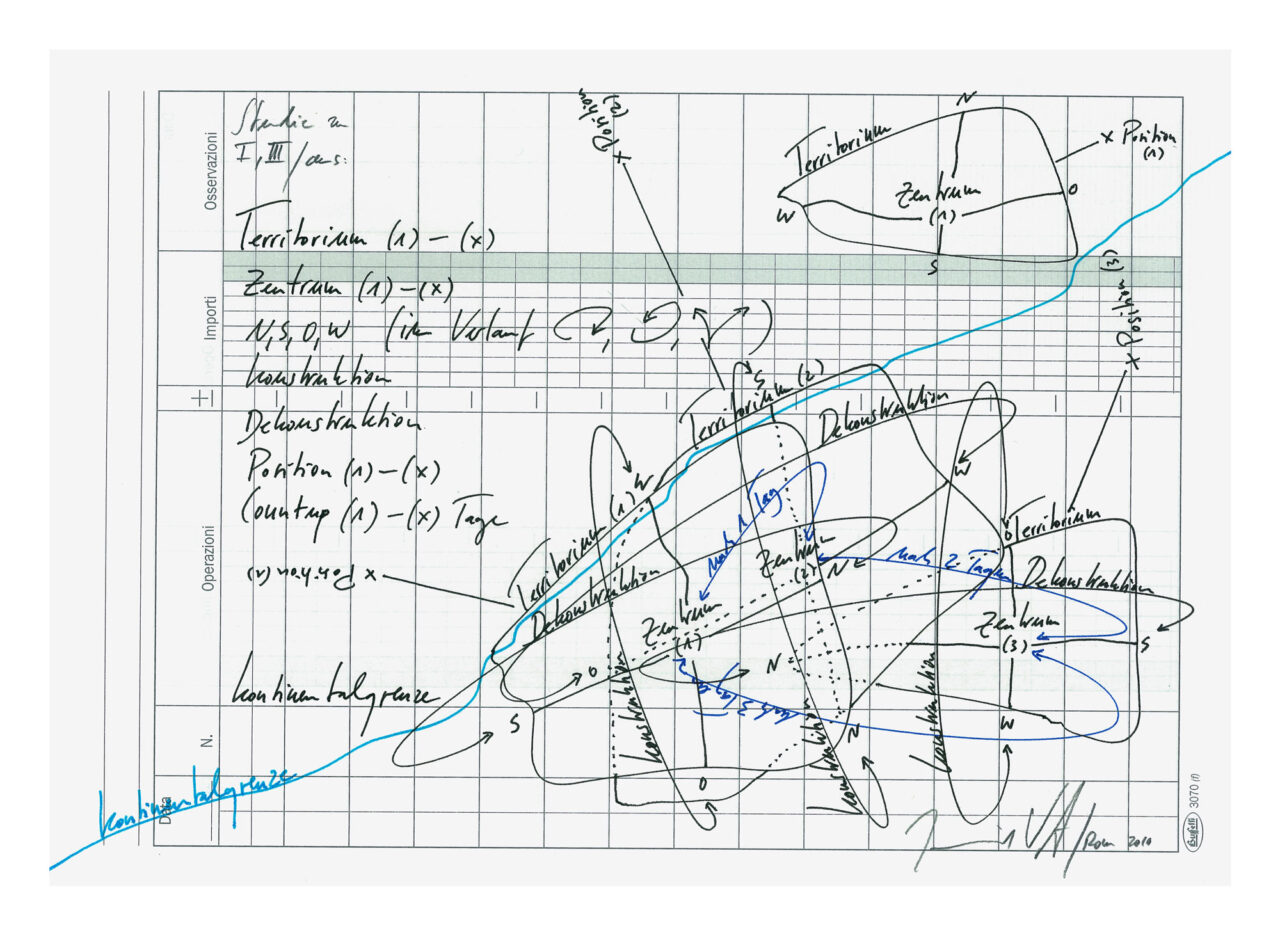 Studie zu
I, III / aus:
Territorium (1) – (x)
Zentrum (1) – (x)
N, S, O, W (im Verlauf , , )
Konstruktion
Dekonstruktion
Position (1) – (x)
Countup (1) – (x) Tage
x Position (1)
Kontinentalgrenze
Kontinentalgrenze
Osservazioni
Importi
Operazioni
N.
Data
x Position
(2)
N
Territorium
x Position
(1)
Zentrum
(1)
O
W
S
x Position (3)
S
Territorium (2)
Dekonstruktion
W
W
Territorium (1)
O
Territorium
nach 1 Tag
Zentrum
(2)
N
nach 2 Tagen
Dekonstruktion
Dekonstruktion
Zentrum
(1)
Zentrum
(3)
S
O
N
nach 3 Tagen
Konstruktion
Konstruktion
Konstruktion
S
N
W
O
/ Rom 2010
Buffetti 3070 (f)